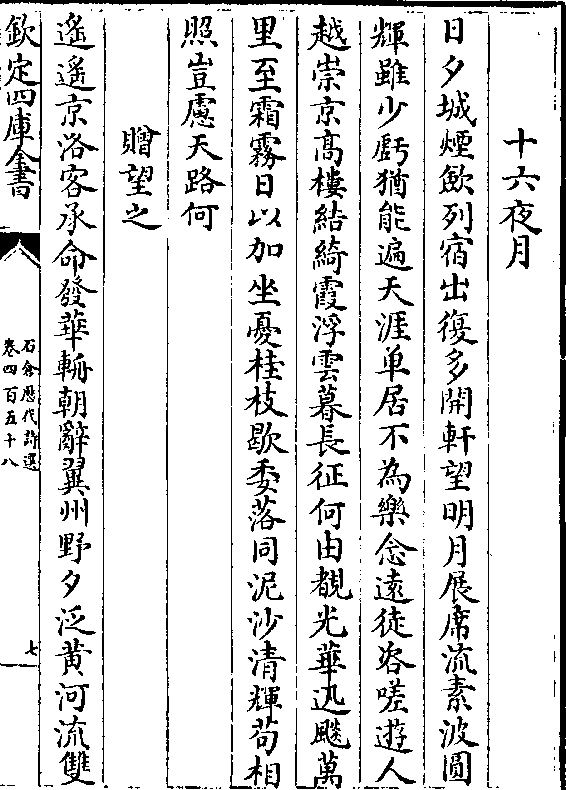 十六夜月
日夕城煙斂列宿出復多開軒望明月展席流素波圓
輝雖少虧猶能遍天涯单居不為樂念遠徒咨嗟遊人
越崇京髙樓結綺霞浮雲暮長征何由覩光華迅飈萬
里至霜霧日以加坐憂桂枝歇委落同泥沙清輝茍相
照豈慮天路何
贈望之
遙遙京洛客承命發華輈朝辭翼州野夕泛黄河流雙
欽定四庫全書
石倉歷代詩選
卷四百五十八
七